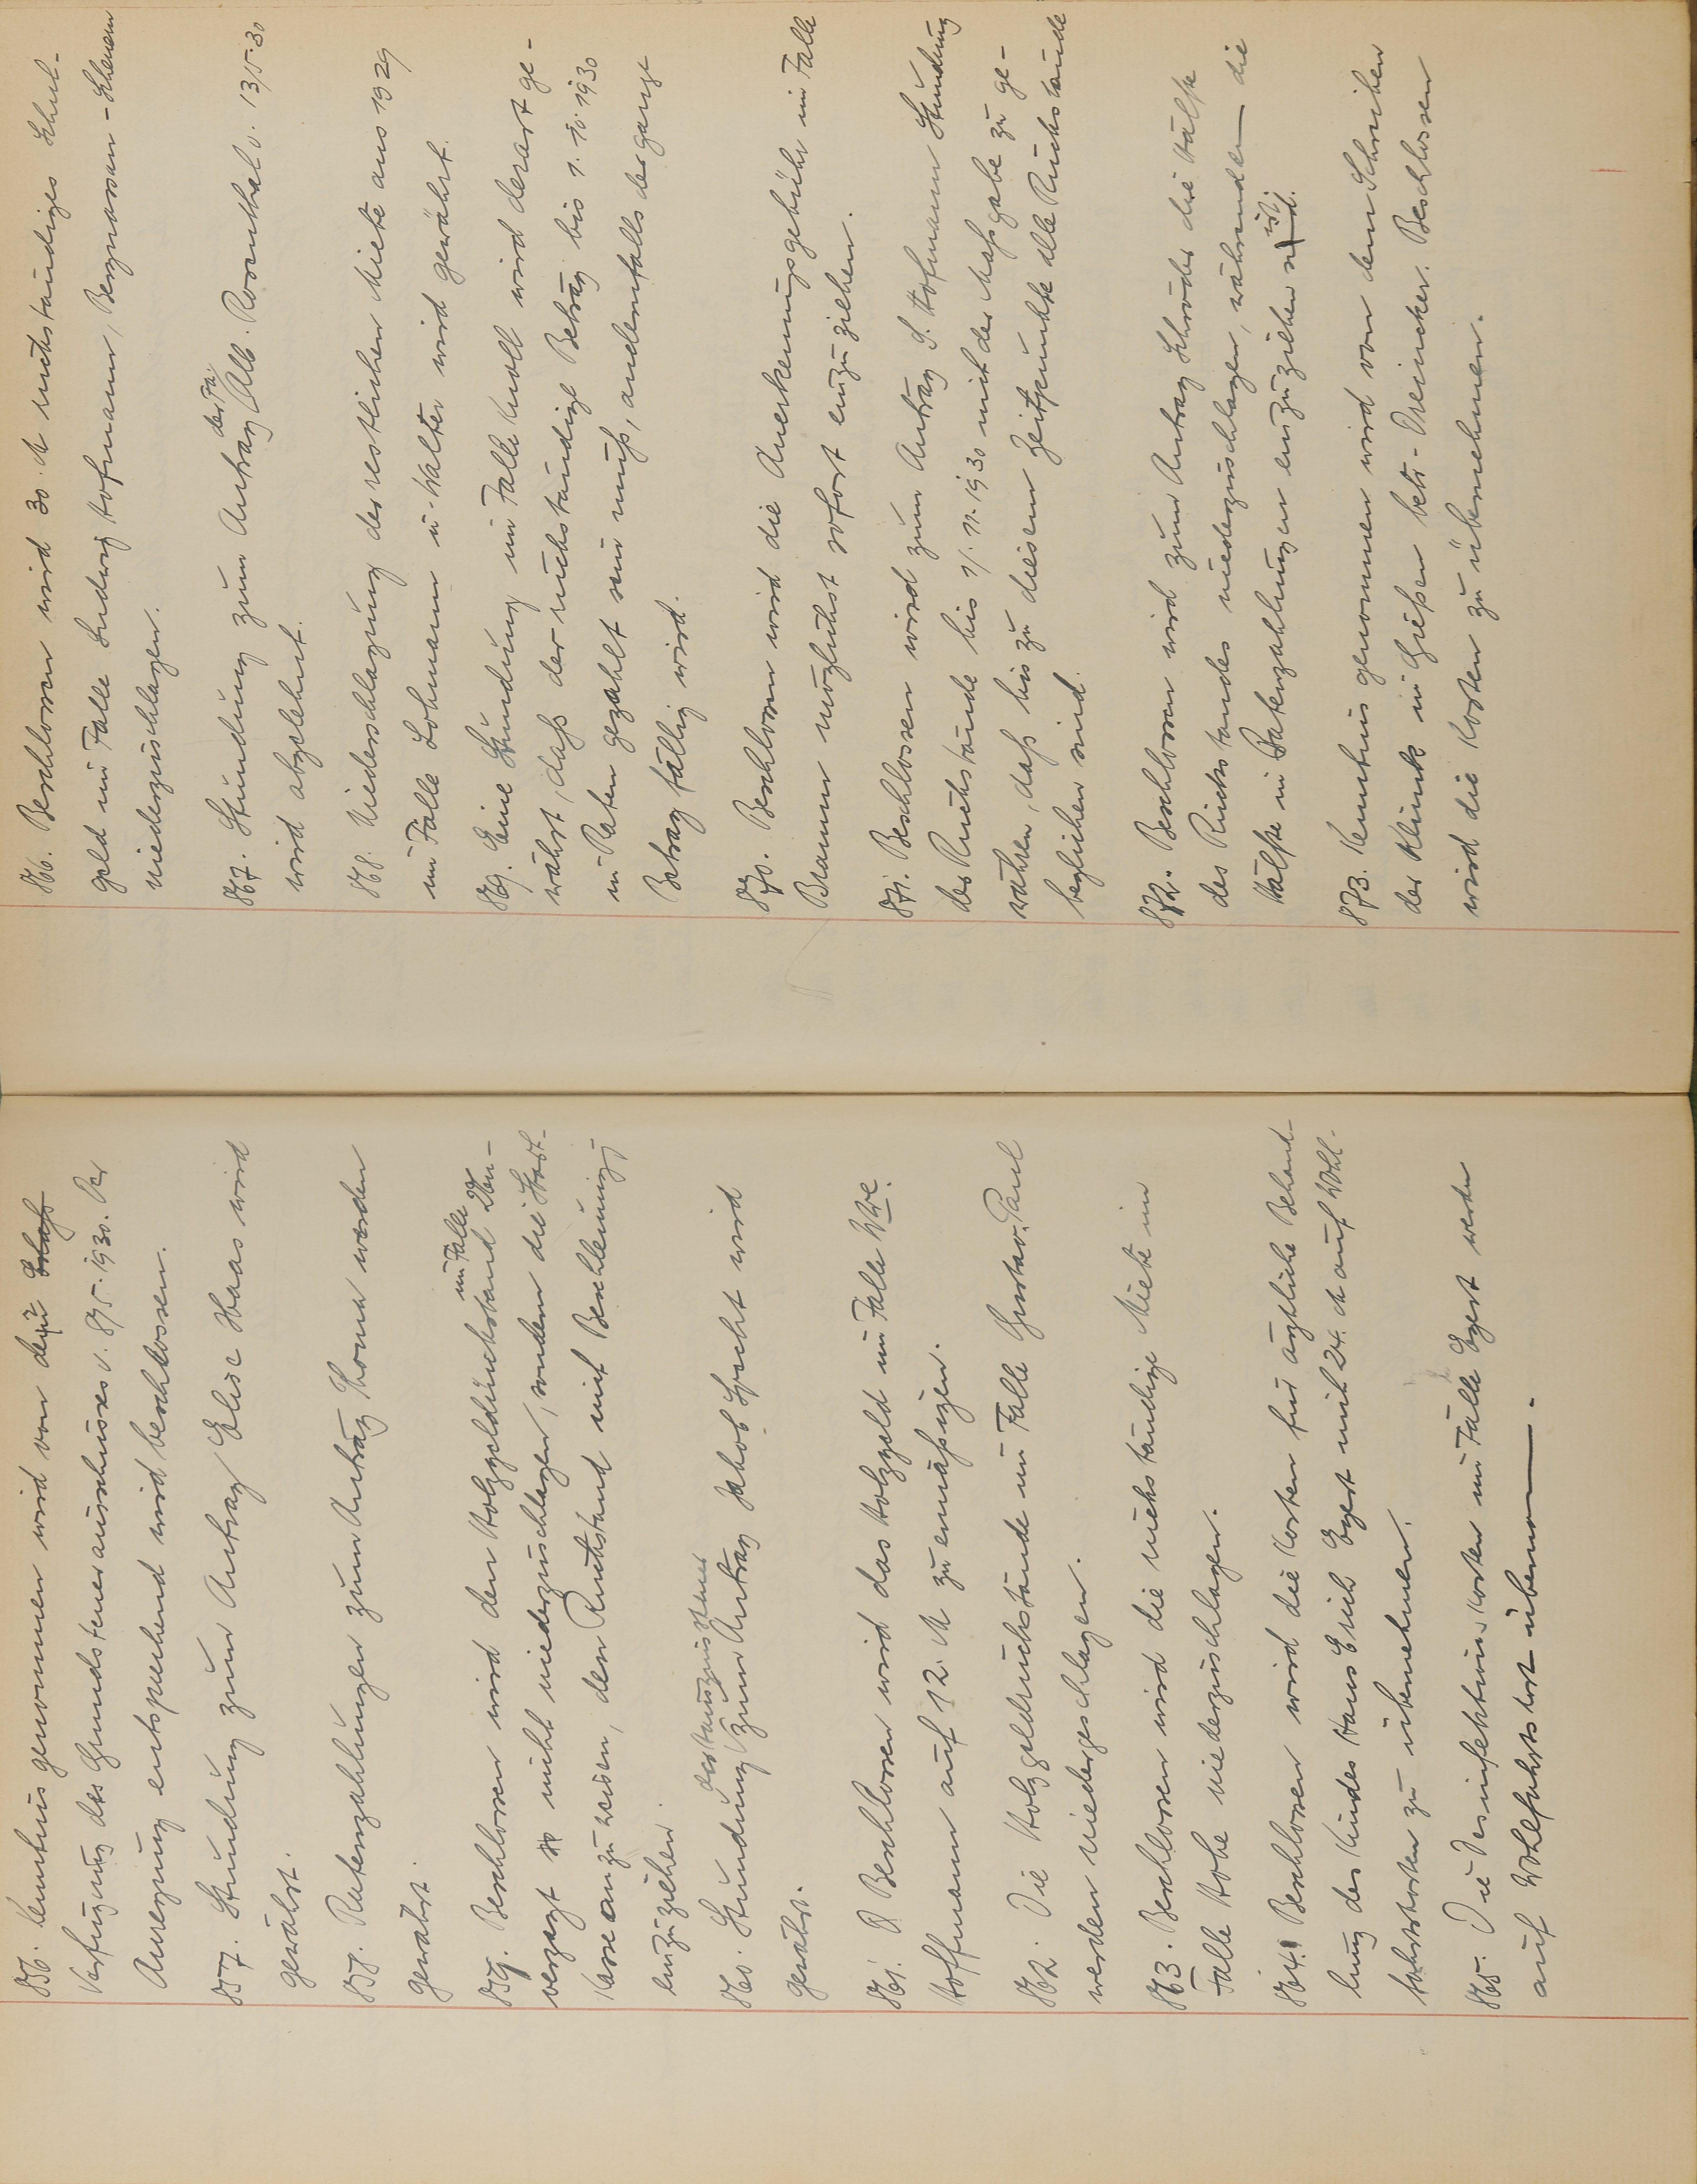 856. Kenntnis genommen wird von der
Verfügung des Grundsteuerausschusses v. 8/5. 1930. Der
Anregung entsprechend wird beschlossen.
857. Stundung zum Antrag Elise Haas wird
gewährt.
858. Ratenzahlungen zum Antrag Thome werden
gewährt.
859. Beschlossen wird den Holzgeldrückstand im Falle
nicht niederzuschlagen, sondern die Stadt-
kasse anzuweisen, den Rückstand mit Beschleunig.
einzuziehen.
860. Stundung der Hauszinssteuer zum Antrag Jakob Specht wird
gewährt.
861. Beschlossen wird das Holzgeld im Falle Wwe.
Hoffmann auf 12. M zu ermäßigen.
862. Die Holzgeldrückstände im Falle Gustav Paul
werden niedergeschlagen.
863. Beschlossen wird die rückständige Miete im
Falle Hohe niederzuschlagen.
864. Beschlossen wird die Kosten für ärztliche Behand-
lung des Kindes Hans Erich Egert mit 24. M auf Wohl-
fahrtskosten zu übernehmen.
865. Die Desinfektionskosten im Falle Egert werden
auf Wohlfahrtskost übernom.
866. Beschlossen wird 30. M rückständiges Schul-
geld im Falle Ludwig Hofmann, Bergnassau-Scheuern
niederzuschlagen.
867. Stundung zum Antrag der Fa. Alb. Rosenthal v. 13/5. 30
wird abgelehnt.
868. Niederschlagung der restlichen Miete aus 1929
im Falle Lohmann u. Walter wird gewährt.
869. Eine Stundung im Falle Knoll wird derart ge-
währt, daß der rückständige Betrag bis 1. 10. 1930
in Raten gezahlt sein muß, andernfalls der ganze
Betrag fällig wird.
870. Beschlossen wird die Anerkennungsgebühr im Falle
Braun möglichst sofort einzuziehen.
871. Beschlossen wird zum Antrag S. Hofmann Stundung
der Rückstände bis 1/. 11. 1930 mit der Maßgabe zu ge-
währen, daß bis zu diesem Zeitpunkte alle Rückstände
beglichen sind.
872. Beschlossen wird zum Antrag Schröder die Hälfte
des Rückstandes niederzuschlagen, während die
Hälfte in Ratenzahlungen einzuziehen ist.
873. Kenntnis genommen wird von dem Schreiben
der Klinik in Gießen betr. Reincker. Beschlossen
wird die Kosten zu übernehmen.